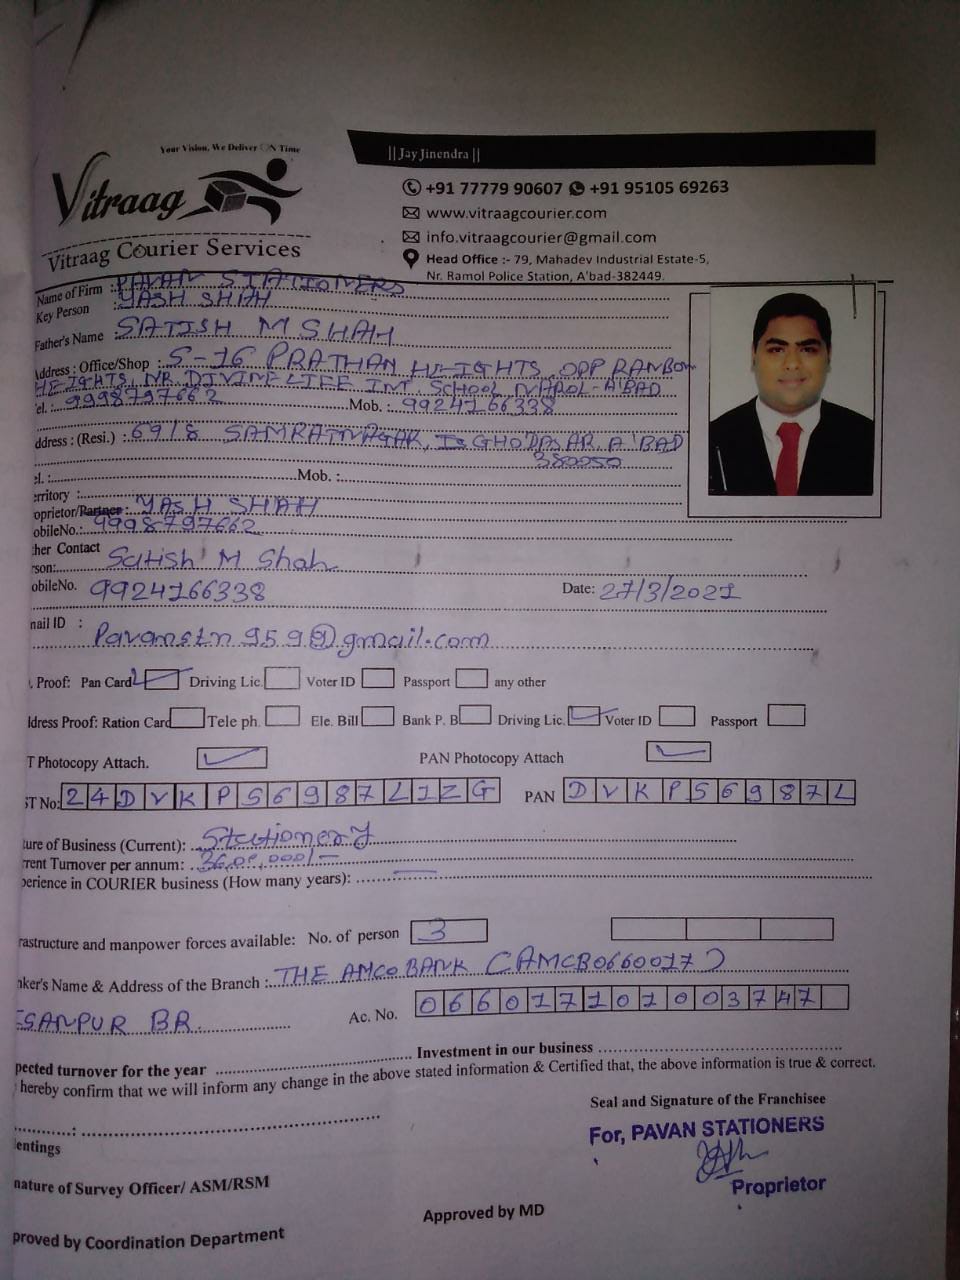 Your Vision, We Deliver ON Time
|| Jay Jinendra ||
Vitraag
Vitraag Courier Services
+91 77779 90607 +91 95105 69263
www.vitraagcourier.com
info.vitraagcourier@gmail.com
Head Office :- 79, Mahadev Industrial Estate-5,
Nr. Ramol Police Station, A'bad-382449.
Name of Firm : PAVAN STATIONERS
Key Person : YASH SHAH
Father's Name : SATISH M SHAH
Address : Office/Shop : S-16 PRATHAN HEIGHTS, OPP RANBOW
HEIGHTS, NR. DIVINE LIFE INT. SCHOOL NAROL-A'BAD
el. : 9998797662 Mob. : 9924166338
ddress : (Resi.) : 691/8 SAMRATNAGAR, ISGHODASAR A'BAD
380050
el. : Mob. :
erritory :
oprietor/Partner : YASH SHAH
obileNo.: 9998797662
her Contact
rson: Satish M Shah
obileNo. 9924166338 Date: 27/3/2021
nail ID :
Pavanstn959@gmail.com
. Proof: Pan Card Driving Lic. Voter ID Passport any other
ldress Proof: Ration Card Tele ph. Ele. Bill Bank P. B Driving Lic. Voter ID Passport
T Photocopy Attach. PAN Photocopy Attach
ST No: 24DVKPS6987L1ZG PAN DVKPS6987L
ture of Business (Current): Stationery
rrent Turnover per annum: 36,00,000/-
perience in COURIER business (How many years):
rastructure and manpower forces available: No. of person 3
nker's Name & Address of the Branch : THE AMCO BANK (AMCB0660017)
ESANPUR BR. Ac. No. 066017101003747
pected turnover for the year Investment in our business
hereby confirm that we will inform any change in the above stated information & Certified that, the above information is true & correct.
Seal and Signature of the Franchisee
For, PAVAN STATIONERS
entings
Proprietor
nature of Survey Officer/ ASM/RSM
Approved by MD
proved by Coordination Department